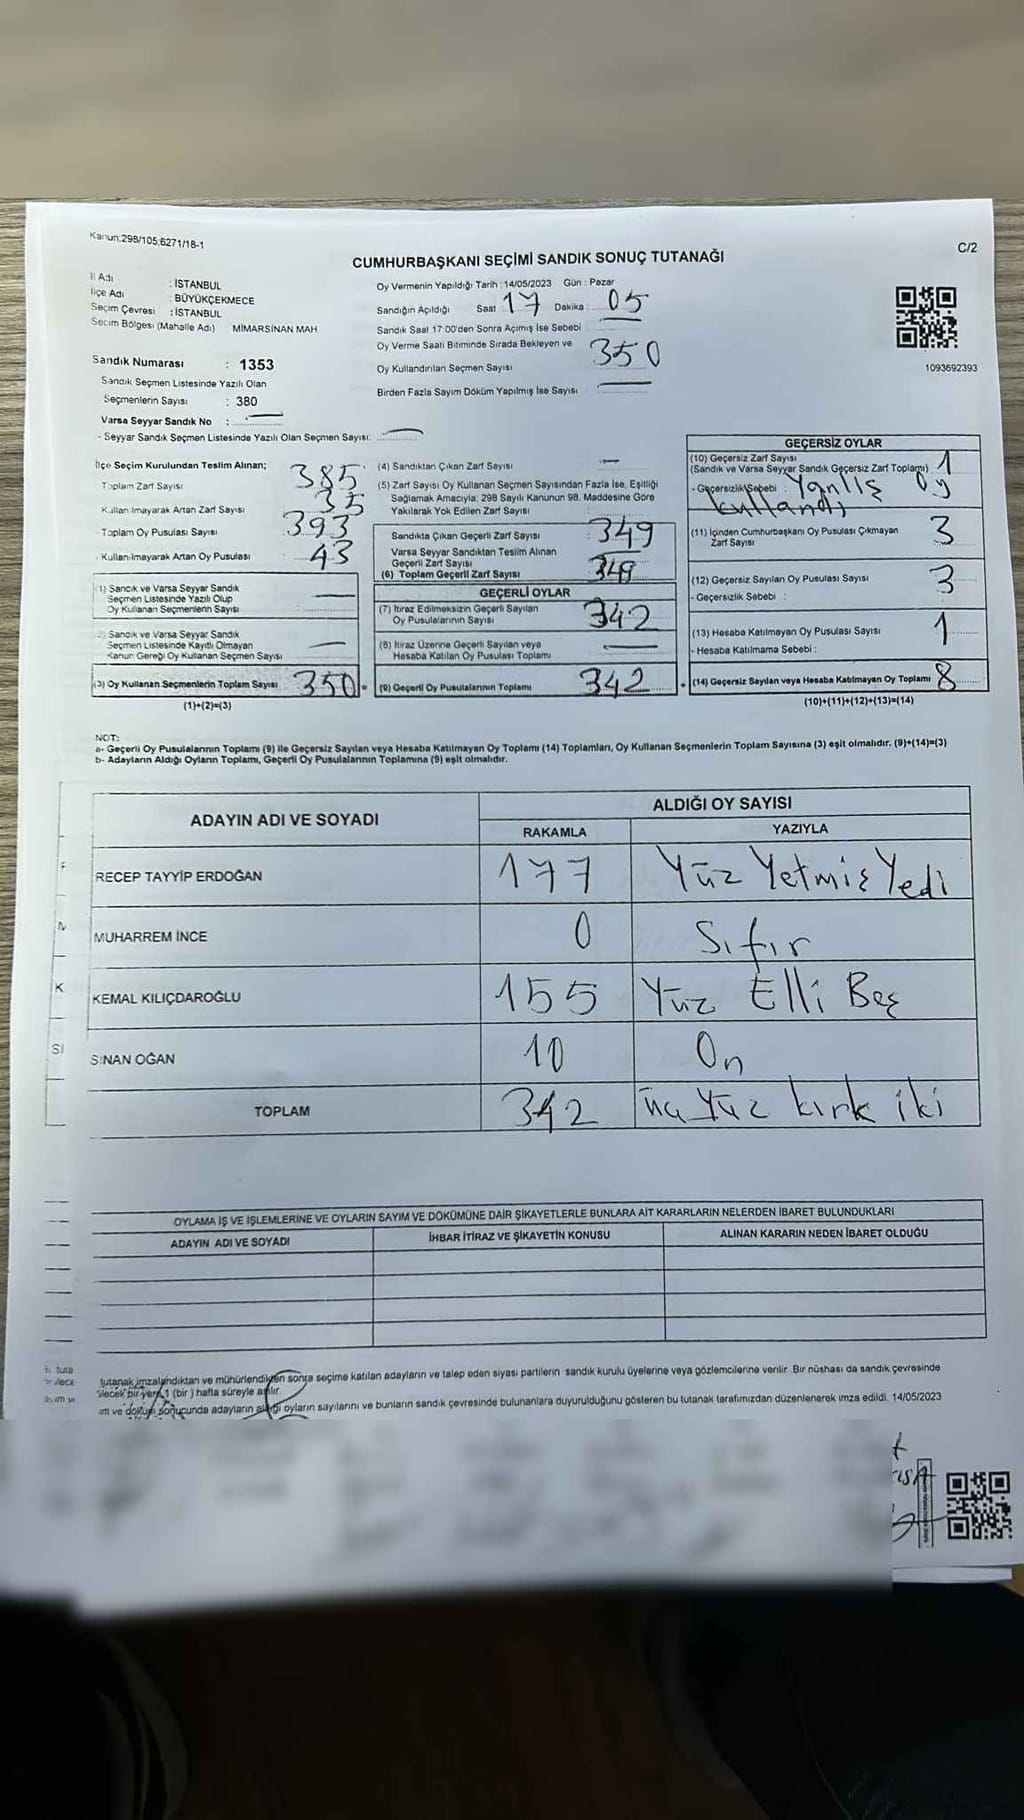 Kanun:298/105;6271/18-1
C/2
CUMHURBAŞKANI SEÇİMİ SANDIK SONUÇ TUTANAĞI
İl Adı : İSTANBUL
İlçe Adı : BÜYÜKÇEKMECE
Seçim Çevresi : İSTANBUL
Seçim Bölgesi (Mahalle Adı) MİMARSİNAN MAH
Oy Vermenin Yapıldığı Tarih : 14/05/2023 Gün : Pazar
Sandığın Açıldığı Saat 17 Dakika : 05
Sandık Saat 17:00'den Sonra Açımış İse Sebebi
Oy Verme Saati Bitiminde Sırada Bekleyen ve
Oy Kullandırılan Seçmen Sayısı 350
Birden Fazla Sayım Döküm Yapılmış İse Sayısı
1093692393
Sandık Numarası : 1353
Sandık Seçmen Listesinde Yazılı Olan
Seçmenlerin Sayısı : 380
Varsa Seyyar Sandık No :
- Seyyar Sandık Seçmen Listesinde Yazılı Olan Seçmen Sayısı:
İlçe Seçim Kurulundan Teslim Alınan;
Toplam Zarf Sayısı 385
Kullanılmayarak Artan Zarf Sayısı 35
Toplam Oy Pusulası Sayısı 393
Kullanılmayarak Artan Oy Pusulası 43
(1) Sandık ve Varsa Seyyar Sandık
Seçmen Listesinde Yazılı Olup
Oy Kullanan Seçmenlerin Sayısı
(2) Sandık ve Varsa Seyyar Sandık
Seçmen Listesinde Kayıtlı Olmayan
Kanun Gereği Oy Kullanan Seçmen Sayısı
(3) Oy Kullanan Seçmenlerin Toplam Sayısı 350 =
(1)+(2)=(3)
(4) Sandıktan Çıkan Zarf Sayısı
(5) Zarf Sayısı Oy Kullanan Seçmen Sayısından Fazla İse, Eşitliği
Sağlamak Amacıyla; 298 Sayılı Kanunun 98. Maddesine Göre
Yakılarak Yok Edilen Zarf Sayısı
Sandıkta Çıkan Geçerli Zarf Sayısı : 349
Varsa Seyyar Sandıktan Teslim Alınan
Geçerli Zarf Sayısı
(6) Toplam Geçerli Zarf Sayısı 349
GEÇERLİ OYLAR
(7) İtiraz Edilmeksizin Geçerli Sayılan
Oy Pusulalarının Sayısı 342
(8) İtiraz Üzerine Geçerli Sayılan veya
Hesaba Katılan Oy Pusulası Toplamı
(9) Geçerli Oy Pusulalarının Toplamı 342 +
GEÇERSİZ OYLAR
(10) Geçersiz Zarf Sayısı
(Sandık ve Varsa Seyyar Sandık Geçersiz Zarf Toplamı) 1
- Geçersizlik Sebebi : Yanlış oy
kullandı
(11) İçinden Cumhurbaşkanı Oy Pusulası Çıkmayan
Zarf Sayısı 3
(12) Geçersiz Sayılan Oy Pusulası Sayısı 3
- Geçersizlik Sebebi :
(13) Hesaba Katılmayan Oy Pusulası Sayısı 1
- Hesaba Katılmama Sebebi :
(14) Geçersiz Sayılan veya Hesaba Katılmayan Oy Toplamı 8
(10)+(11)+(12)+(13)=(14)
NOT:
a- Geçerli Oy Pusulalarının Toplamı (9) ile Geçersiz Sayılan veya Hesaba Katılmayan Oy Toplamı (14) Toplamları, Oy Kullanan Seçmenlerin Toplam Sayısına (3) eşit olmalıdır. (9)+(14)=(3)
b- Adayların Aldığı Oyların Toplamı, Geçerli Oy Pusulalarının Toplamına (9) eşit olmalıdır.
ADAYIN ADI VE SOYADI
ALDIĞI OY SAYISI
RAKAMLA YAZIYLA
RECEP TAYYİP ERDOĞAN 177 Yüz Yetmiş Yedi
MUHARREM İNCE 0 Sıfır
KEMAL KILIÇDAROĞLU 155 Yüz Elli Beş
SİNAN OĞAN 10 On
TOPLAM 342 üç Yüz kırk iki
OYLAMA İŞ VE İŞLEMLERİNE VE OYLARIN SAYIM VE DÖKÜMÜNE DAİR ŞİKAYETLERLE BUNLARA AİT KARARLARIN NELERDEN İBARET BULUNDUKLARI
ADAYIN ADI VE SOYADI İHBAR İTİRAZ VE ŞİKAYETİN KONUSU ALINAN KARARIN NEDEN İBARET OLDUĞU
tutanak imzalandıktan ve mühürlendikten sonra seçime katılan adayların ve talep eden siyasi partilerin sandık kurulu üyelerine veya gözlemcilerine verilir. Bir nüshası da sandık çevresinde
ilecek bir yere 1 (bir) hafta süreyle asılır.
ım ve döküm sonucunda adayların aldığı oyların sayılarını ve bunların sandık çevresinde bulunanlara duyurulduğunu gösteren bu tutanak tarafımızdan düzenlenerek imza edildi. 14/05/2023